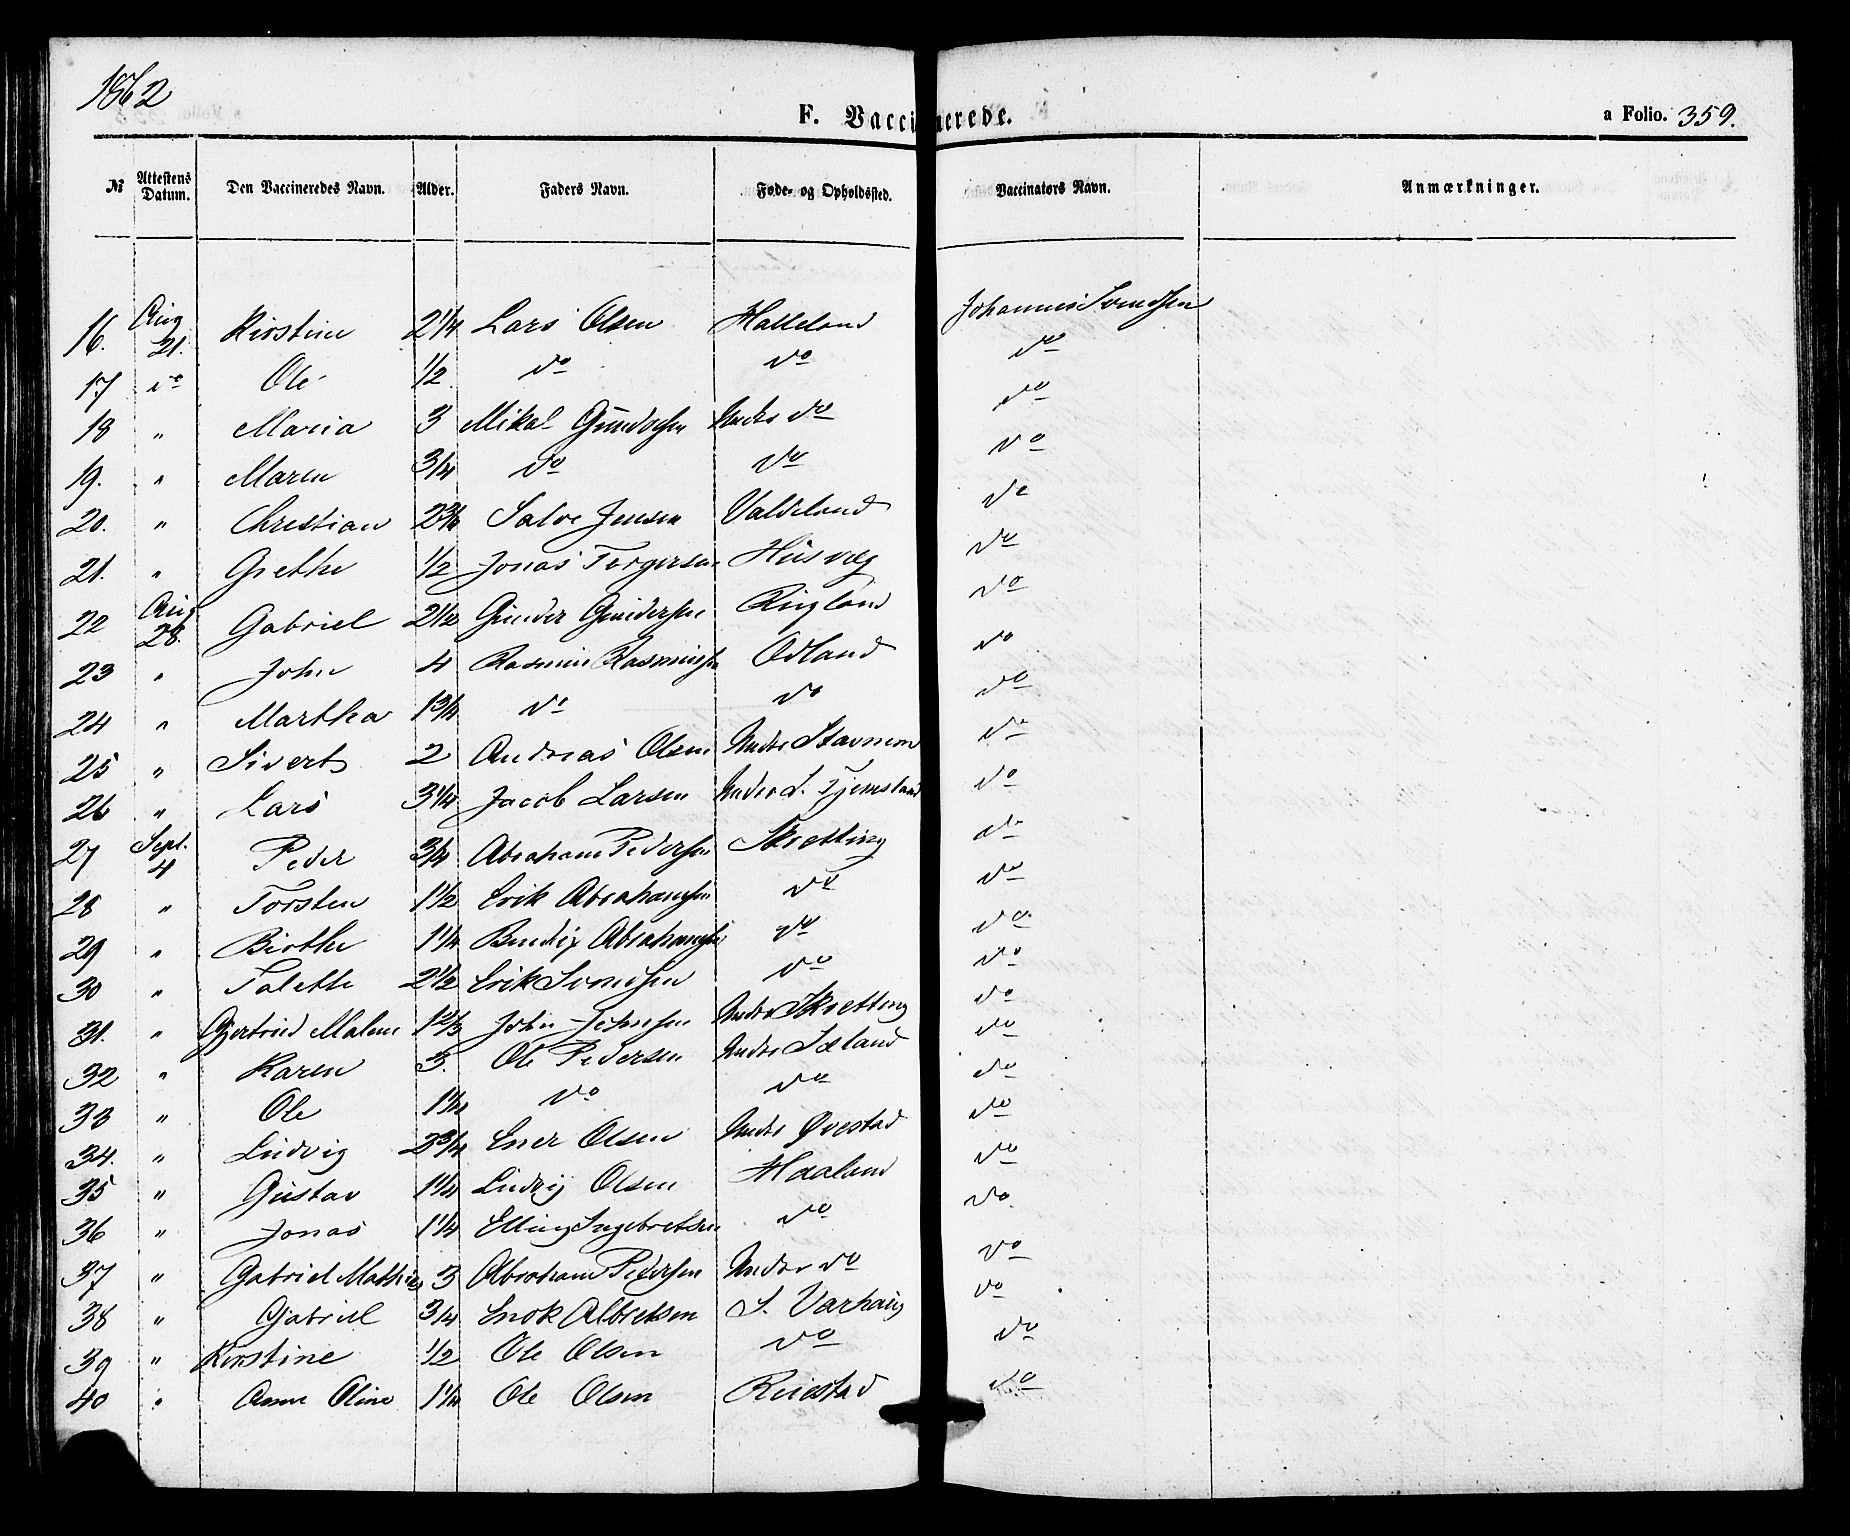 1862
F. Vaccinerede.
a Folio. 359.
№ Attestens Datum. Den Vaccineredes Navn. Alder. Faders Navn. Føde- og Opholdssted. Vaccinators Navn. Anmærkninger.
16. Aug 21. Kirstine 2 1/4 Lars Olsen Halleland Johannes Svendsen
17 do Ole 1/2 do do do
18 " Maria 3 Mikal Under do do
19. " Maren 3/4 do do do
20. " Christian 2 3/4 Salve Jensen Valdeland do
21. " Grethe 1/2 Jonas Torgersen Husvæg do
22 Aug 28. Gabriel 2 1/2 Gunder Gundersen Ringland do
23 " John 4 Rasmus Rasmussen Odland do
24 " Martha 1 3/4 do do do
25 " Sivert 2 Andreas Olsen Under Stavnem do
26 " Lars 3 1/4 Jacob Larsen Under S. Tjemsland do
27 Sept. 4 Peder 3/4 Abraham Pedersen Skretting do
28 " Torsten 1 1/2 Erik Abrahamsen do do
29 " Birthe 1 1/4 Bendix Abrahamsen do do
30 " Talette 2 1/2 Erik Svendsen do do
31. " Gjertrud Malene 1 2/3 John Johnsen Under Skretting do
32 " Karen 3. Ole Pedersen Under Sæland do
33 " Ole 1 1/4 do do do
34. " Ludvig 2 3/4 Ener Olsen Under Qvestad do
35 " Gustav 1 1/4 Ludvig Olsen Haaland do
36 " Jonas 1 1/4 Elling Ingebretsen do do
37 " Gabriel Mathias 3 Abraham Pedersen Under do do
38 " Gabriel 3/4 Enok Albretsen S. Varhaug do
39 " Kirstine 1/2 Ole Olsen do do
40 " Anne Oline 1 1/4 Ole Olsen Reiestad do